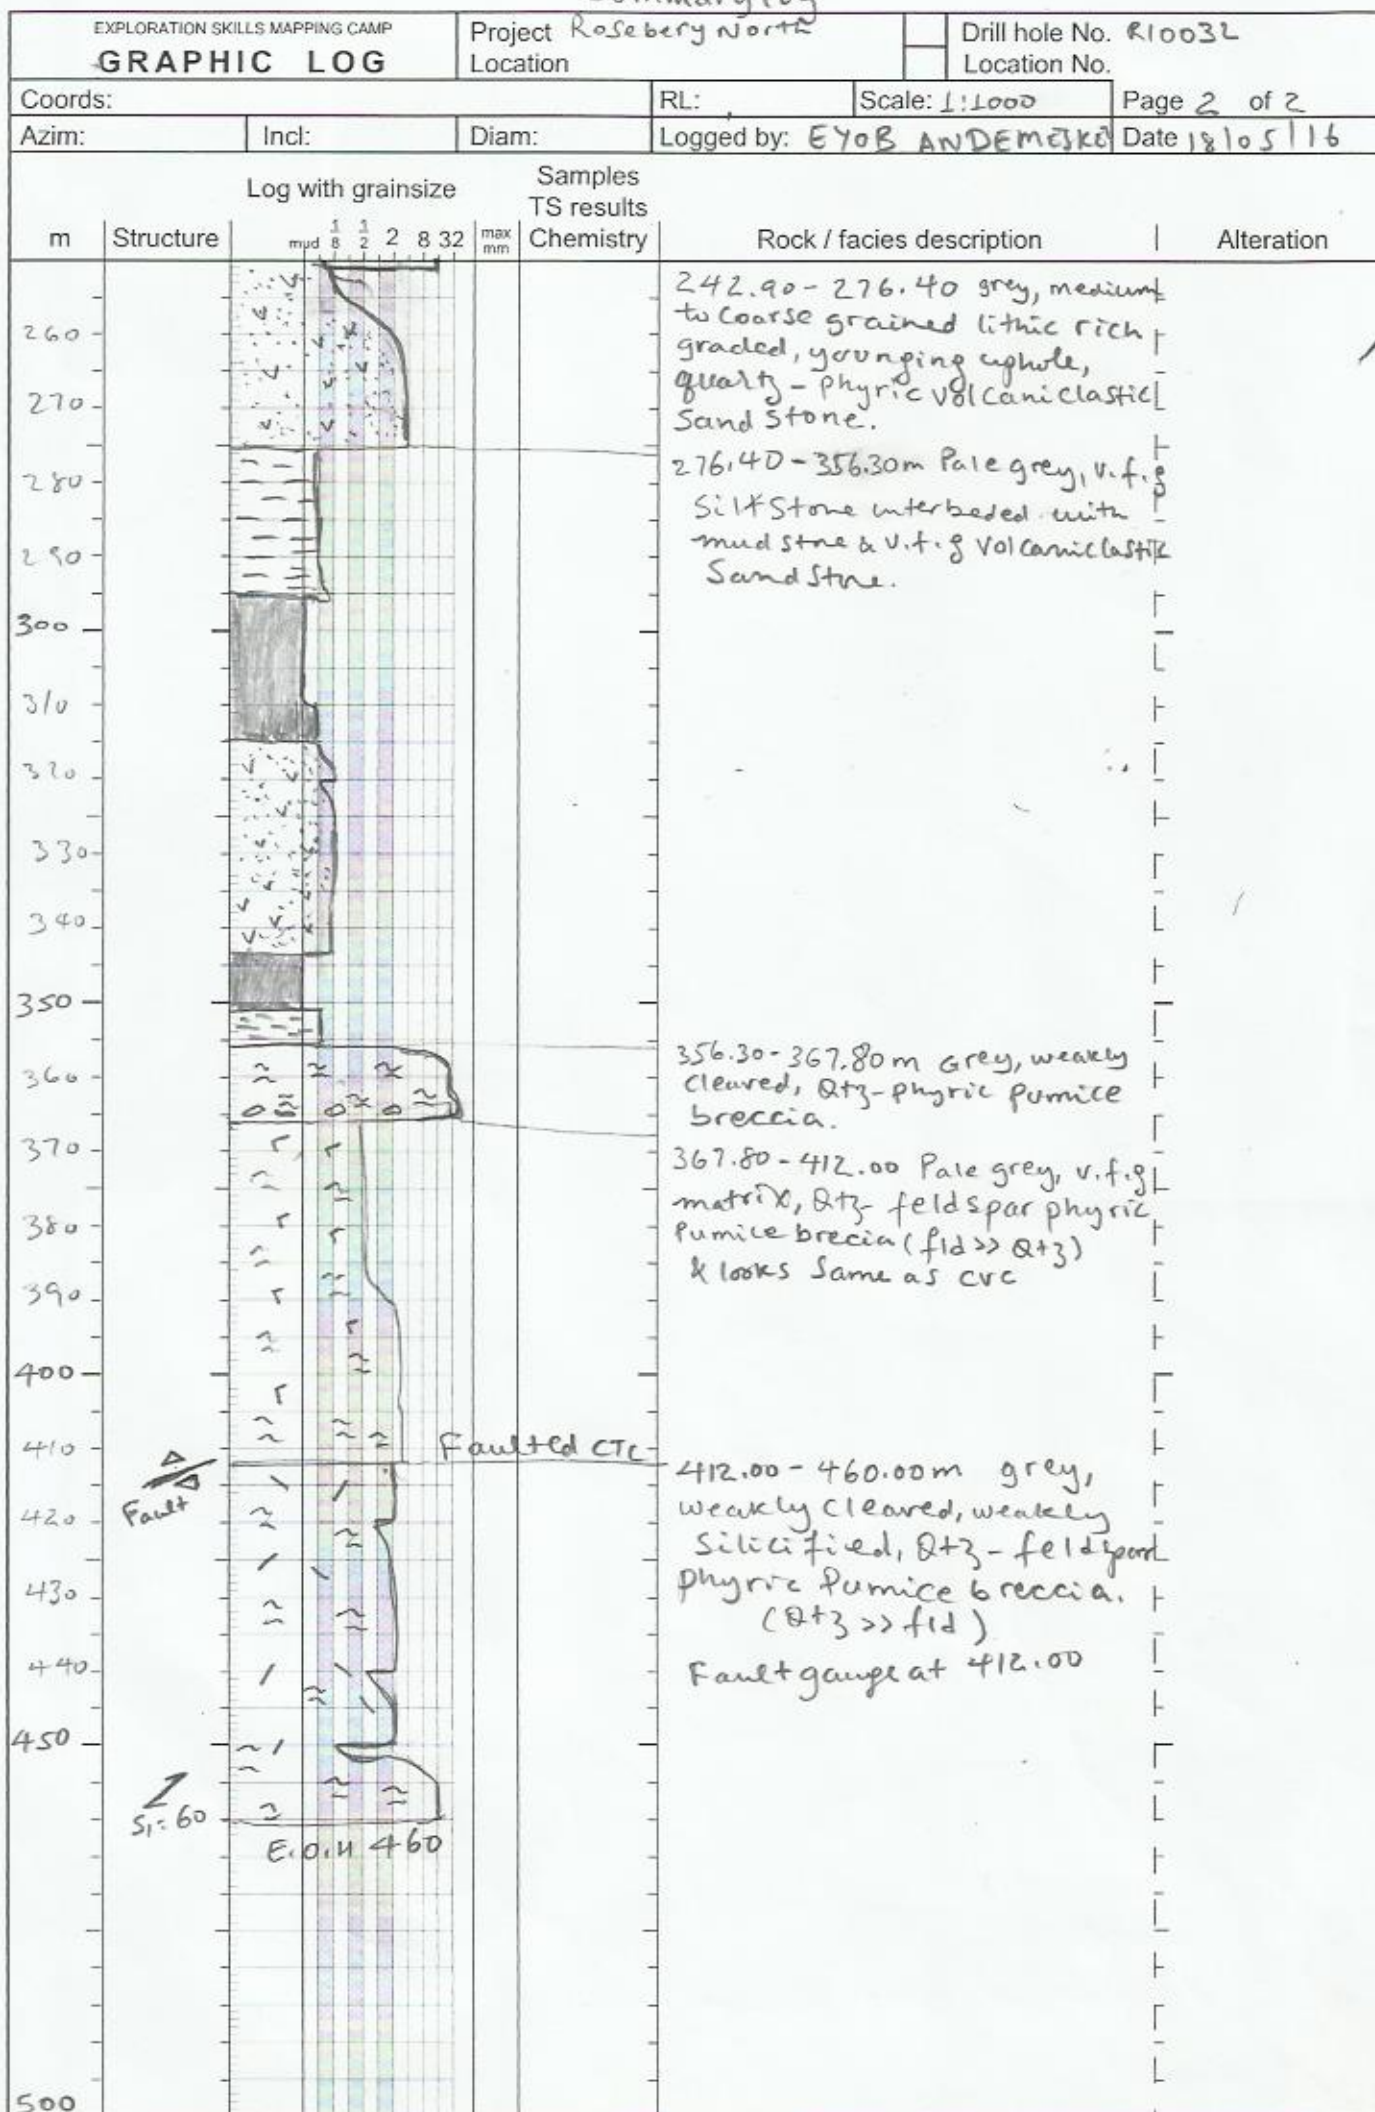 Summary log
EXPLORATION SKILLS MAPPING CAMP
GRAPHIC LOG
Project Rosebery North
Location
Drill hole No. R10032
Location No.
Coords:
RL:
Scale: 1:1000
Page 2 of 2
Azim:
Incl:
Diam:
Logged by: EYOB ANDEMESKEL
Date 18/05/16
m
Structure
Log with grainsize
mud 1/8 1/2 2 8 32
max mm
Samples
TS results
Chemistry
Rock / facies description
Alteration
260
270
280
290
300
310
320
330
340
350
360
370
380
390
400
410
420
430
440
450
500
242.90 - 276.40 grey, medium
to coarse grained lithic rich
graded, younging uphole,
quartz - phyric volcaniclastic
Sand stone.
276.40 - 356.30m Pale grey, v.f.g
Siltstone interbeded with
mud stone & v.f.g volcaniclastic
Sand stone.
356.30 - 367.80m Grey, weakly
cleaved, Qtz-phyric pumice
breccia.
367.80 - 412.00 Pale grey, v.f.g
matrix, Qtz- feldspar phyric
Pumice brecia (fld >> Qtz)
& looks Same as CVC
Faulted CTC
Fault
412.00 - 460.00m grey,
weakly cleaved, weakly
Silicified, Qtz - feldspar
phyric Pumice breccia.
(Qtz >> fld)
Fault gauge at 412.00
S1= 60
E.O.H 460